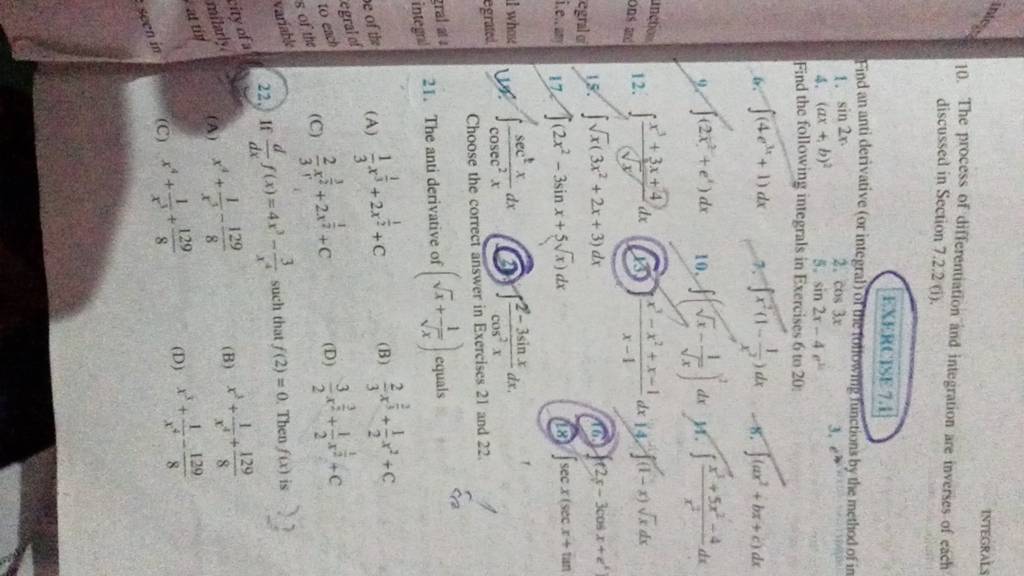 INTEGRALS
10. The process of differentiation and integration are inverses of each
discussed in Section 7.2.2 (i).
EXERCISE 7.1
Find an anti derivative (or integral) of the following functions by the method of in
1. sin 2x 2. cos 3x 3.
4. (ax + b)² 5. sin 2x – 4
Find the following integrals in Exercises 6 to 20:
6. ∫(4e³ˣ + 1) dx 7. ∫x²(1 – 1/x²) dx 8. ∫(ax² + bx + c) dx
9. ∫(2x² + eˣ) dx 10. ∫(√x – 1/√x)² dx 11. ∫(x³ + 5x² – 4)/x² dx
12. ∫(x³ + 3x + 4)/√x dx 13. ∫(x³ – x² + x – 1)/(x – 1) dx 14. ∫(1 – x)√x dx
15. ∫√x(3x² + 2x + 3) dx 16. ∫(2x – 3cos x + eˣ)
17. ∫(2x² – 3sin x + 5√x) dx 18. ∫sec x (sec x + tan
19. ∫sec² x/cosec² x dx ∫(2 – 3sin x)/cos² x dx.
Choose the correct answer in Exercises 21 and 22.
21. The anti derivative of (√x + 1/√x) equals
(A) 1/3 x^(1/3) + 2x^(1/2) + C (B) 2/3 x^(2/3) + 1/2 x² + C
(C) 2/3 x^(3/2) + 2x^(1/2) + C (D) 3/2 x^(3/2) + 1/2 x^(1/2) + C
22. If d/dx f(x) = 4x³ – 3/x⁴ such that f(2) = 0. Then f(x) is
(A) x⁴ + 1/x³ – 129/8 (B) x³ + 1/x⁴ + 129/8
(C) x⁴ + 1/x³ + 129/8 (D) x³ + 1/x⁴ – 129/8